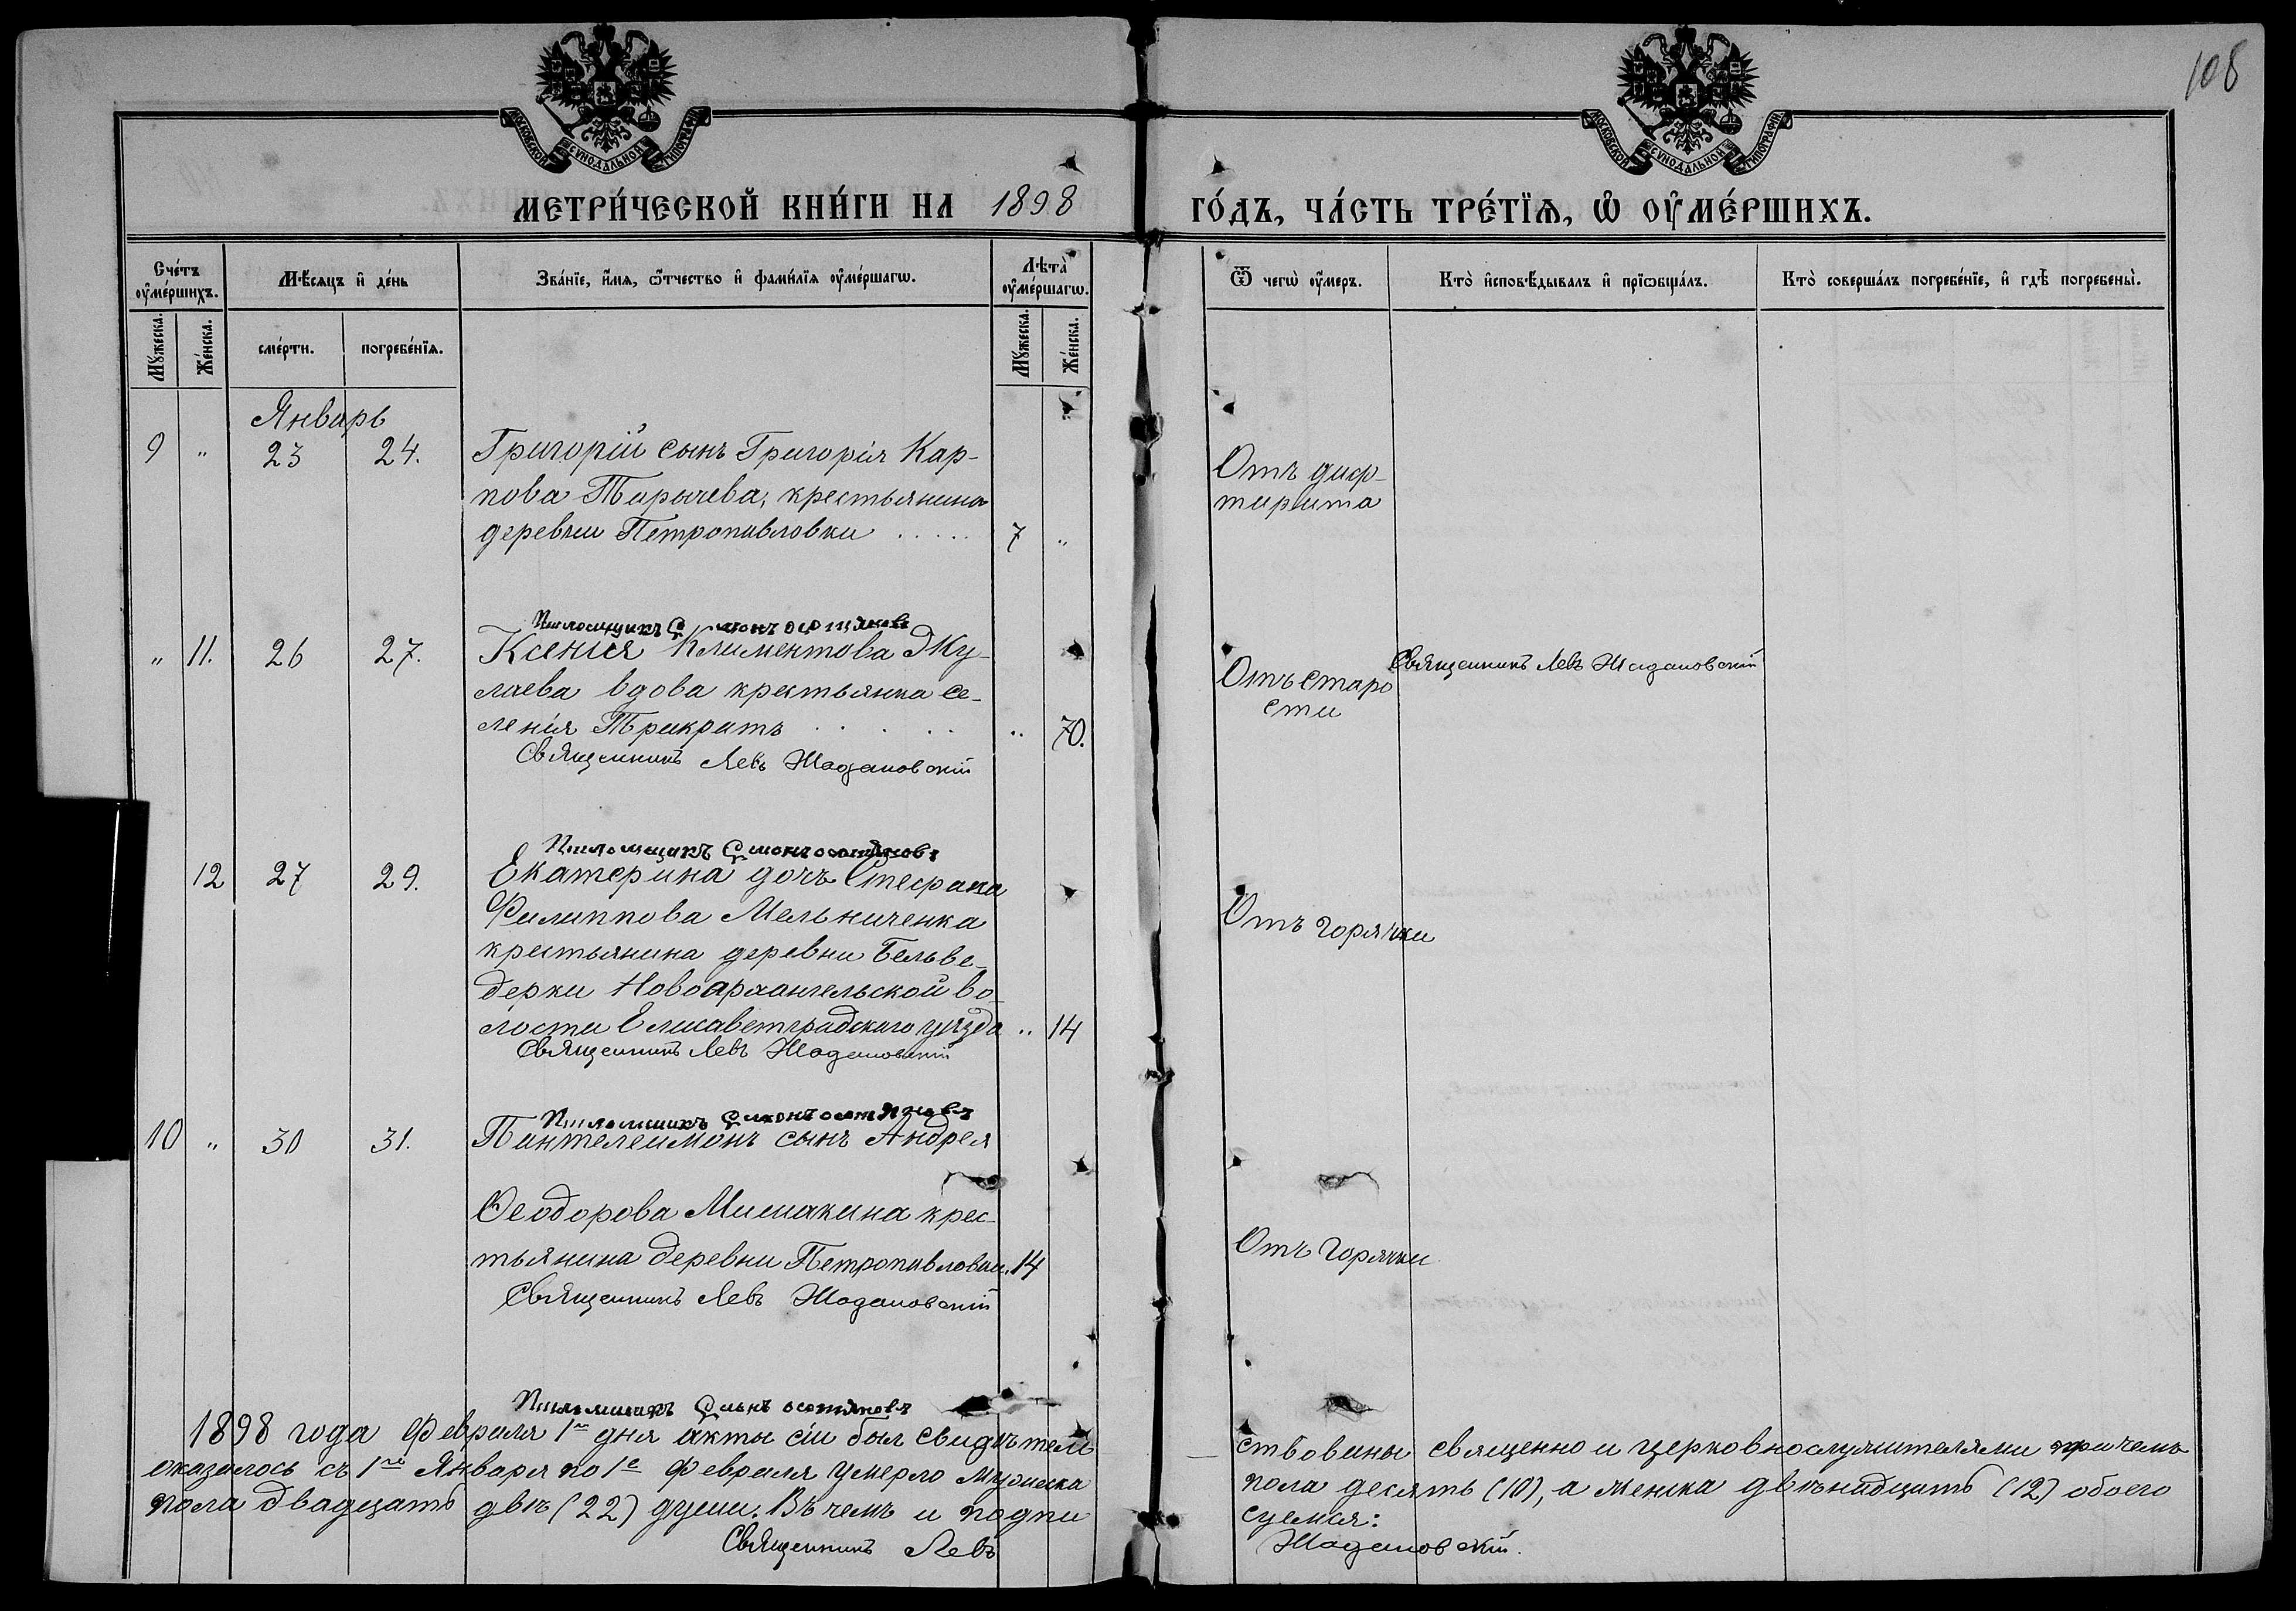 108
МОСКОВСКОЙ СѴНОДАЛЬНОЙ ТИПОГРАФІИ
МОСКОВСКОЙ СѴНОДАЛЬНОЙ ТИПОГРАФІИ
МЕТРИ́ЧЕСКОЙ КНИ́ГИ НА 1898 ГО́ДЪ, ЧА́СТЬ ТРЕ́ТЇѦ, Ѽ ОУ҆МЕ́РШИХЪ.
Сче́тъ оу҆ме́ршихъ.
Мѣ́сяцъ и҆ де́нь
Зва́нїе, и҆́мѧ, ѻ҆́тчество и҆ фами́лїѧ оу҆ме́ршагѡ.
Лѣта̀ оу҆ме́ршагѡ.
Ѿ чегѡ̀ оу҆́меръ.
Кто̀ и҆сповѣ́дывалъ и҆ прїѡбща́лъ.
Кто̀ соверша́лъ погребе́нїе, и҆ гдѣ̀ погребены̀.
Мꙋ́жеска. Же́нска.
сме́рти. погребе́нїѧ.
Мꙋ́жеска. Же́нска.
Январь
9 " 23 24. Григорій сынъ Григорія Кар-
пова Тирычева, крестьянина
деревни Петропавловки ..... 7 "
Отъ диф-
тирита
Псаломщикъ
" 11. 26 27. Ксенія Климентова Жу-
лаева вдова крестьянка се-
ленія Трикратъ ..... " 70.
Священникъ Левъ Шадановскій
Отъ старо
сти
Священникъ Левъ Шадановскій
Псаломщикъ
12 27 29. Екатерина дочь Стефана
Филиппова Мельниченка
крестьянина деревни Бельве-
дерки Новоархангельской во-
лости Елисаветградскаго уѣзда " 14
Священникъ Левъ Шадановскій
Отъ горячки
Псаломщикъ
10 " 30 31. Пантелеимонъ сынъ Андрея
Ѳеодорова Мишакина крес-
тьянина деревни Петропавловки. 14
Священникъ Левъ Шадановскій
Отъ горячки
Псаломщикъ
1898 года Февраля 1го дня акты сіи был свидѣтель
ствованы священно и церковнослужителями при чемъ
оказалось съ 1го Января по 1е Февраля умерло мужеска
пола десять (10), а женска двѣнадцать (12) обоего
пола двадцать двѣ (22) души. Въ чемъ и подпи
суемся:
Священникъ Левъ
Шадановскій.